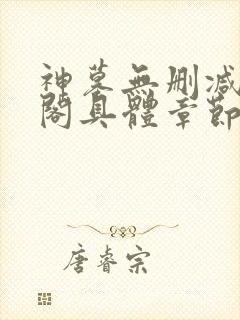 神墓無删减
閣具體章節
唐睿宗